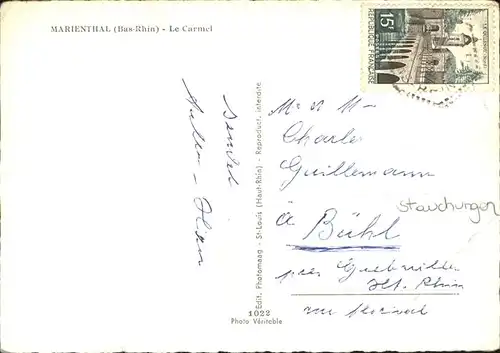 MARIENTHAL (Bas-Rhin) - Le Carmel
15F
REPUBLIQUE FRANÇAISE
Edit. Photomaag - St-Louis (Haut-Rhin) - Reproduct. interdite
1022
Photo Véritable
Mr & M
Charles
Guillemann
à Bühl
près Guebwiller
Ht. Rhin
rue florival
Stauchungen